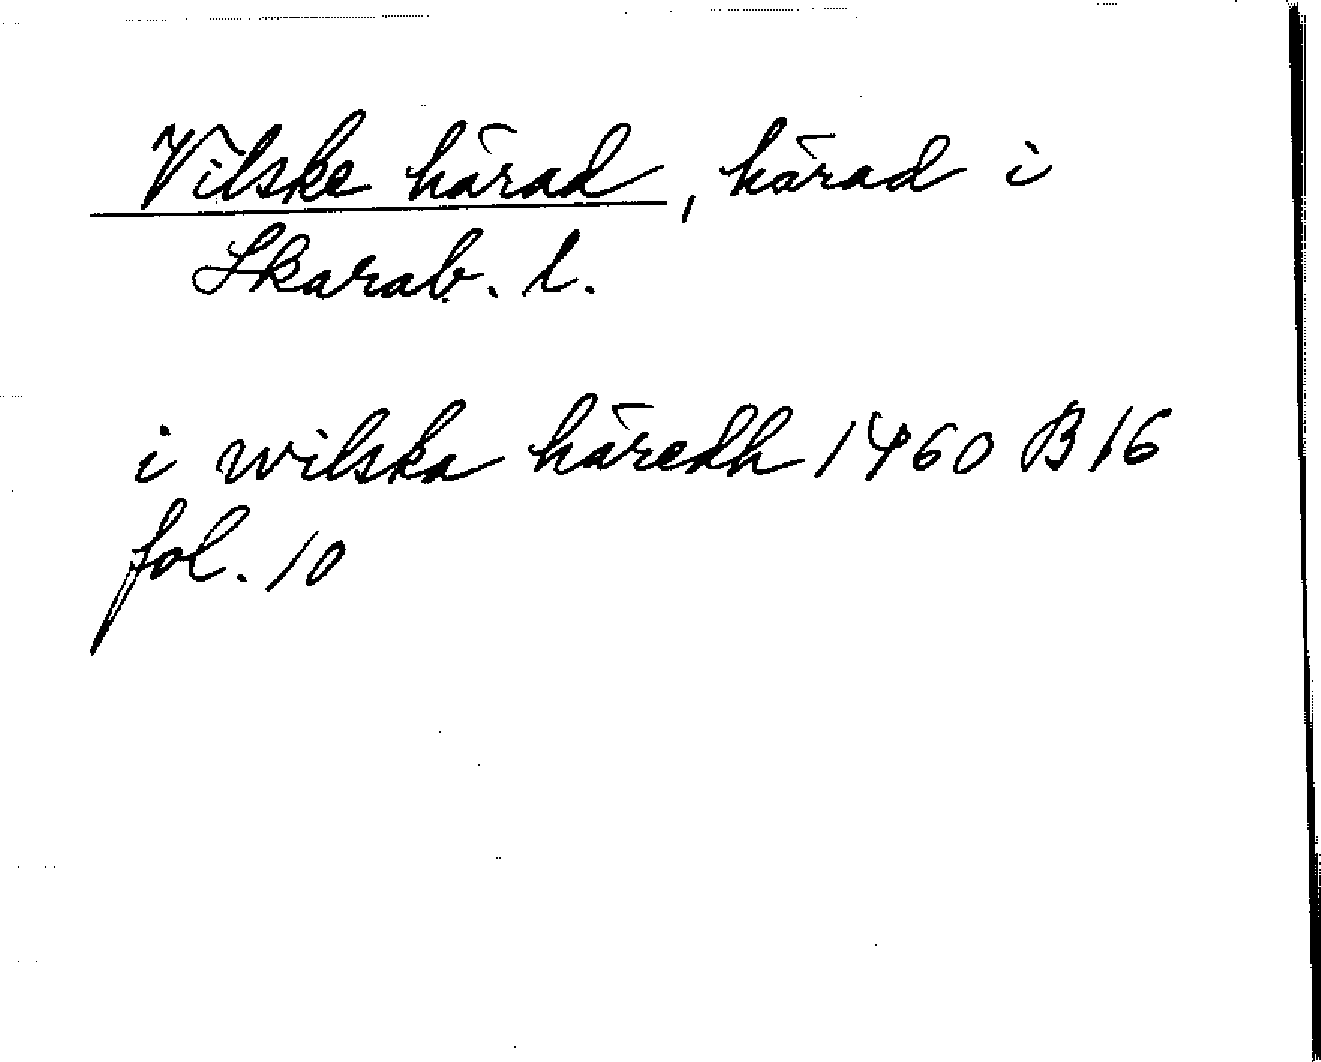 Vilske härad, härad i
Skarab. l.
i wilska häredh 1460 B16
fol. 10